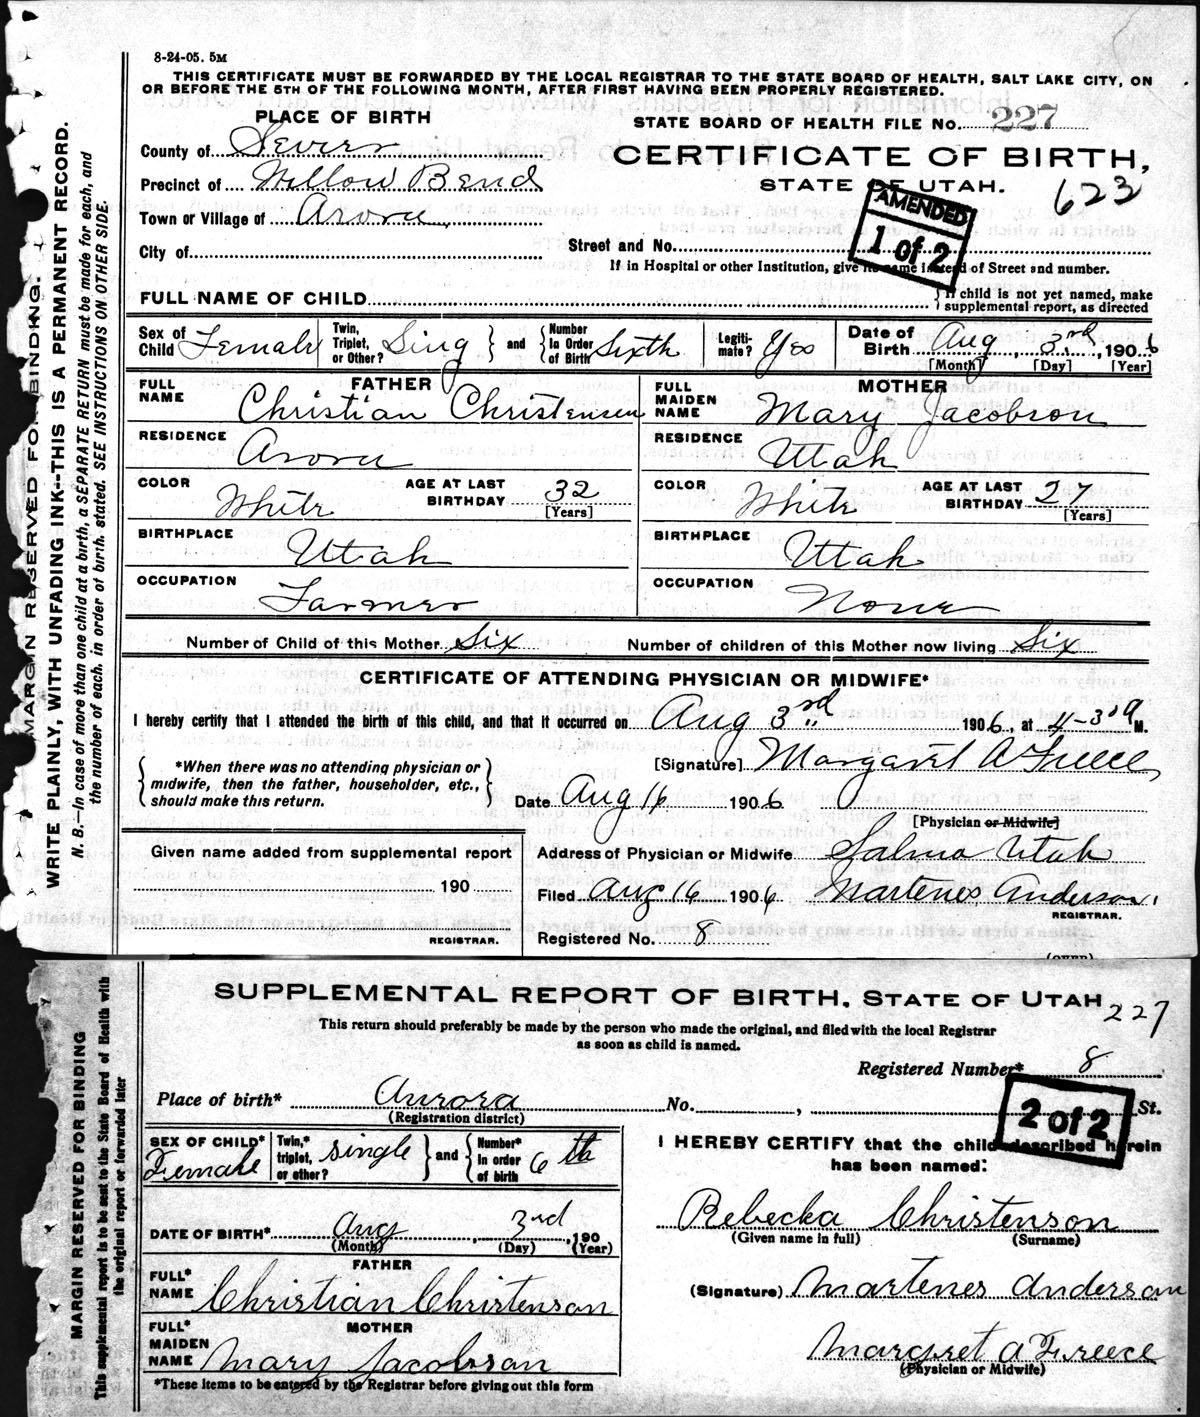 8-24-05. 5M
THIS CERTIFICATE MUST BE FORWARDED BY THE LOCAL REGISTRAR TO THE STATE BOARD OF HEALTH, SALT LAKE CITY, ON
OR BEFORE THE 5TH OF THE FOLLOWING MONTH, AFTER FIRST HAVING BEEN PROPERLY REGISTERED.
PLACE OF BIRTH
STATE BOARD OF HEALTH FILE No. 227
County of Sevier
CERTIFICATE OF BIRTH,
Precinct of Willow Bend
STATE OF UTAH. 623
AMENDED
1 of 2
Town or Village of Arora
Street and No.
City of
If in Hospital or other Institution, give its name instead of Street and number.
FULL NAME OF CHILD
If child is not yet named, make
supplemental report, as directed
Sex of Child Female
Twin, Triplet, or Other? Sing and Number In Order of Birth Sixth
Legitimate? Yes
Date of Birth Aug, 3rd, 1906
[Month] [Day] [Year]
FATHER
FULL NAME Christian Christensen
MOTHER
FULL MAIDEN NAME Mary Jacobson
RESIDENCE Arora
RESIDENCE Utah
COLOR White AGE AT LAST BIRTHDAY 32 [Years]
COLOR White AGE AT LAST BIRTHDAY 27 [Years]
BIRTHPLACE Utah
BIRTHPLACE Utah
OCCUPATION Farmer
OCCUPATION None
Number of Child of this Mother Six
Number of children of this Mother now living Six
CERTIFICATE OF ATTENDING PHYSICIAN OR MIDWIFE*
I hereby certify that I attended the birth of this child, and that it occurred on Aug 3rd 1906, at M.
*When there was no attending physician or
midwife, then the father, householder, etc.,
should make this return.
[Signature] Margaret A Freece
Date Aug 16 1906
[Physician or Midwife]
Given name added from supplemental report
190
REGISTRAR.
Address of Physician or Midwife Salina Utah
Filed Aug 16 1906 Martenes Anderson
REGISTRAR.
Registered No. 8
(OVER)
MARGIN RESERVED FOR BINDING.
WRITE PLAINLY, WITH UNFADING INK--THIS IS A PERMANENT RECORD.
N. B.—In case of more than one child at a birth, a SEPARATE RETURN must be made for each, and
the number of each, in order of birth, stated. SEE INSTRUCTIONS ON OTHER SIDE.
SUPPLEMENTAL REPORT OF BIRTH, STATE OF UTAH 227
This return should preferably be made by the person who made the original, and filed with the local Registrar
as soon as child is named.
Registered Number* 8
Place of birth* Aurora No. , St.
(Registration district)
2 of 2
SEX OF CHILD* Female
Twin,* triplet, or other? single and Number* in order of birth 6th
I HEREBY CERTIFY that the child described herein
has been named:
Rebecka Christenson
(Given name in full) (Surname)
DATE OF BIRTH* Aug, 3rd, 190
(Month) (Day) (Year)
FATHER
FULL* NAME Christian Christenson
(Signature) Martenes Anderson
MOTHER
FULL* MAIDEN NAME Mary Jacobson
Margret A Freece
(Physician or Midwife)
*These items to be entered by the Registrar before giving out this form
MARGIN RESERVED FOR BINDING
This supplemental report is to be sent to the State Board of Health with
the original report or forwarded later